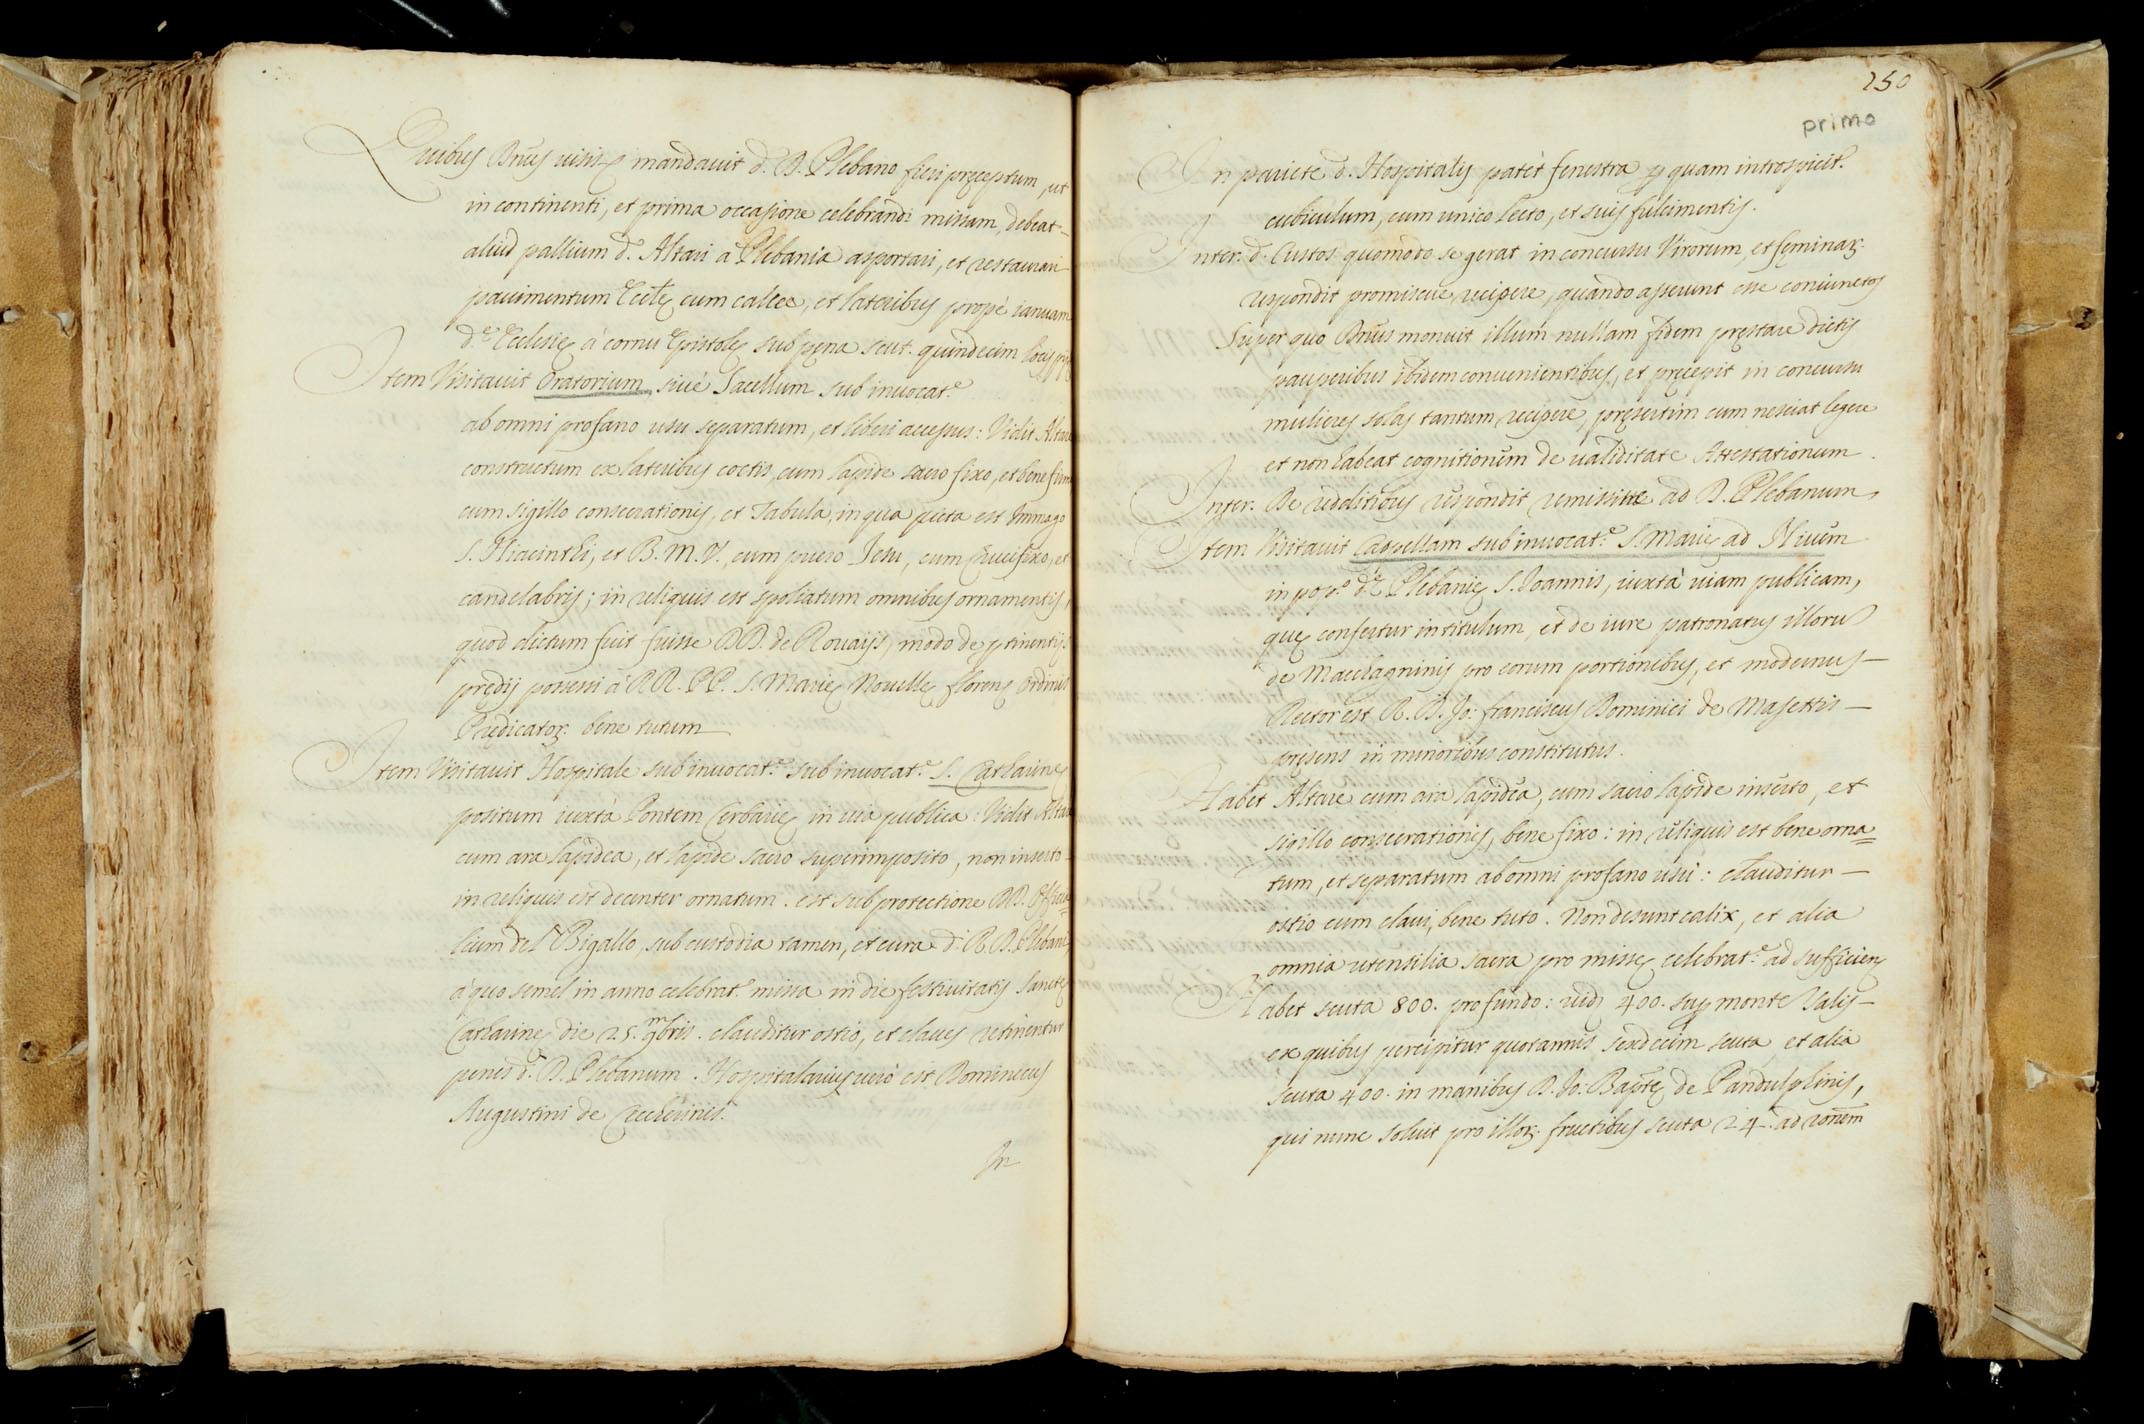 Quibus Dn̄us uisis mandauit d. D. Plebano fieri pręceptum, ut
in continenti, et prima occasione celebrandi missam, debeat
aliud pallium d. Altari à Plebania asportari, et restaurari
pauimentum Eccłę cum calce, et lateribus propè ianuam
d.ę Ecclesię à cornu Epistolę sub pęna scut. quindecim locis pijs
Item Visitauit Oratorium siuè Sacellum sub inuocat.e
ab omni profano usu separatum, et liberi accessus: Vidit Altare
constructum ex lateribus coctis, cum lapide sacro fixo, et bene firmo
cum sigillo consecrationis, et Tabula, in qua picta est Immago
S. Hiacinthi, et B. M. V. cum puero Iesu, cum Crucifixo, et
candelabris; in reliquis est spoliatum omnibus ornamentis,
quod dictum fuit fuisse DD. de Rouaijs, modo de ptinentijs
prędij possessi à RR. PP. S. Marię Nouellę florenȩ Ordinis
Predicator. bene tutum
Item Visitauit Hospitale sub inuocat.e sub inuocat.e S. Catharinę
positum iuxtà Pontem Cerbarię in uia publica: Vidit Altare
cum ara lapidea, et lapide sacro superimposito, non inserto
in reliquis est decenter ornatum. est sub protectione DD. Officia=
lium del Bigallo, sub custodia tamen, et cura d. R. D. Plebani,
à quo semel in anno celebrat. missa in die festiuitatis Sanctę
Catharinę die 25. 9mbris. clauditur ostio, et claues retinentur
penes d. D. Plebanum. Hospitalarius uerò est Dominicus
Augustini de Cecherinis.
In
250
primo
In pariete d. Hospitalis patèt fenestra p quam introspicit.
cubiculum, cum unico lecto, et suis fulcimentis.
Inter. d. Custos quomodo se gerat in concursu Virorum, et fęminar.
respondit promiscue recipere, quando asserunt esse coniunctos
Super quo Dn̄us monuit illum nullam fidem pręstare dictis
pauperibus ibidem conuenientibus, et pręcepit in concursu
mulieres solas tantum recipere, pręsertim cum nesciat legere
et non habeat cognitionem de ualiditate Attestationum.
Inter. De redditibus respondit remissiue ad D. Plebanum
Item Visitauit Cappellam sub inuocat.e S. Marię ad Niuem
in pop.o d.ę Plebanię S. Ioannis, iuxtà uiam publicam,
quę confertur in titulum, et de iure patronatus illoru
de Macchagninis pro eorum portionibus, et modernus
Rector est R. D. Jo: franciscus Dominici de Masettis
pręsens in minoribus constitutus.
Habet Altare cum ara lapidea, cum sacro lapide inserto, et
sigillo consecrationis, bene fixo: in reliquis est bene orna=
tum, et separatum ab omni profano usu: clauditur
ostio cum claui, bene tuto. Non desunt calix, et alia
omnia utensilia sacra pro missę celebrat.e ad sufficienȩ
Habet scuta 800. pro fundo: uidȩ 400. sup monte Salis
ex quibus percipitur quotannis sexdecim scuta, et alia
scuta 400. in manibus D. Jo: Bap̄tę de Pandulphinis,
qui nunc soluit pro illor. fructibus scuta 24. ad ron̄em